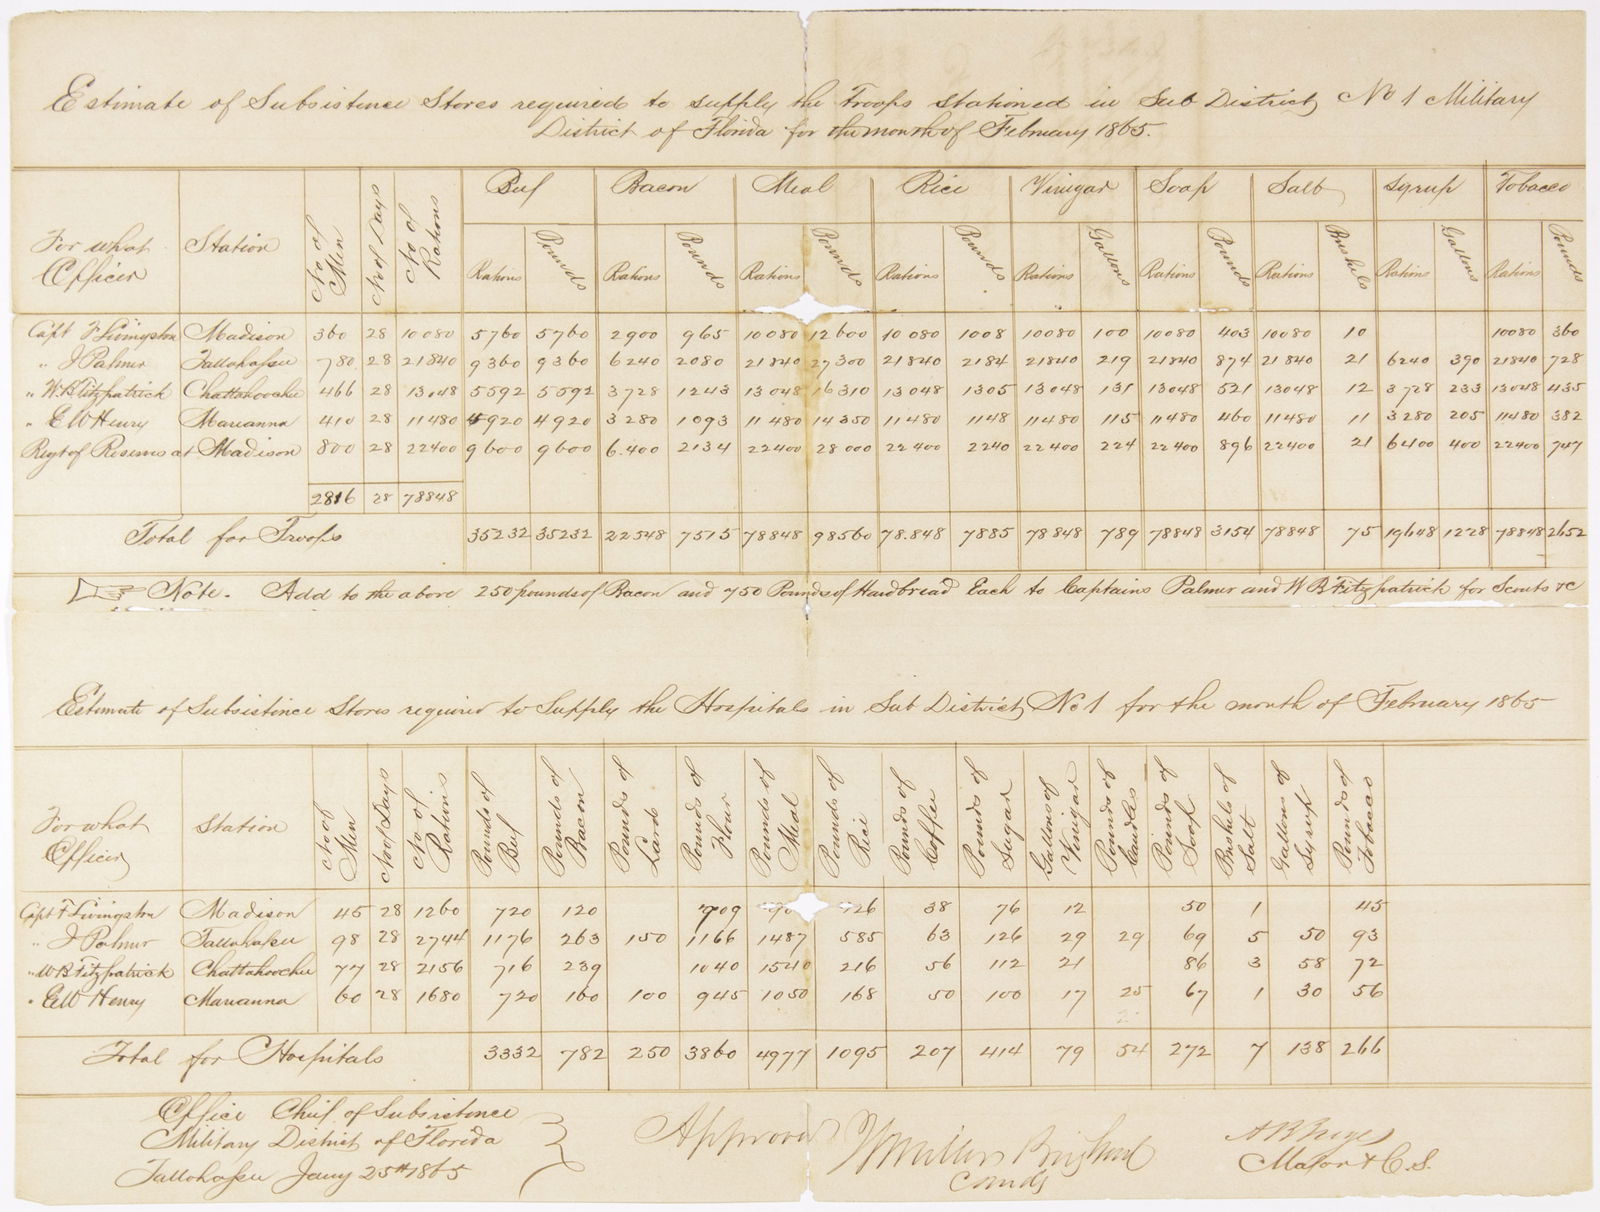 Estimate of Subsistence Stores required to supply the Troops stationed in Sub District No 1 Military
District of Florida for the month of February 1865.
Beef Bacon Meal Rice Vinegar Soap Salt Syrup Tobacco
For what Officer Station No of Men No of Days No of Rations Rations Pounds Rations Pounds Rations Pounds Rations Pounds Rations Gallons Rations Pounds Rations Bushels Rations Gallons Rations Pounds
Capt F Livingston Madison 360 28 10080 5760 5760 2900 965 10080 12600 10080 1008 10080 100 10080 403 10080 10 10080 360
" J Palmer Tallahassee 780 28 21840 9360 9360 6240 2080 21840 27300 21840 2184 21840 219 21840 874 21840 21 6240 390 21840 728
" W B Fitzpatrick Chattahoochee 466 28 13048 5592 5592 3728 1243 13048 16310 13048 1305 13048 131 13048 521 13048 12 3728 233 13048 435
" E W Henry Marianna 410 28 11480 4920 4920 3280 1093 11480 14350 11480 1148 11480 115 11480 460 11480 11 3280 205 11480 382
Regt of Reserves at Madison 800 28 22400 9600 9600 6.400 2134 22400 28000 22400 2240 22400 224 22400 896 22400 21 6400 400 22400 747
2816 28 78848
Total for Troops 35232 35232 22548 7515 78848 98560 78.848 7885 78848 789 78848 3154 78848 75 19648 1228 78848 2652
Note. Add to the above 250 pounds of Bacon and 750 Pounds of Hardbread Each to Captains Palmer and W B Fitzpatrick for Scouts &c
Estimate of Subsistence Stores required to Supply the Hospitals in Sub District No 1 for the month of February 1865
For what Officer Station No of Men No of Days No of Rations Pounds of Beef Pounds of Bacon Pounds of Lard Pounds of Flour Pounds of Meal Pounds of Rice Pounds of Coffee Pounds of Sugar Gallons of Vinegar Pounds of Candles Pounds of Soap Bushels of Salt Gallons of Syrup Pounds of Tobacco
Capt F Livingston Madison 45 28 1260 720 120 709 126 38 76 12 50 1 45
" J Palmer Tallahassee 98 28 2744 1176 263 150 1166 1487 585 63 126 29 29 69 5 50 93
" W B Fitzpatrick Chattahoochee 77 28 2156 716 239 1040 1540 216 56 112 21 86 3 58 72
" E W Henry Marianna 60 28 1680 720 160 100 945 1050 168 50 100 17 25 67 1 30 56
Total for Hospitals 3332 782 250 3860 4977 1095 207 414 79 54 272 7 138 266
Office Chief of Subsistence
Military District of Florida
Tallahassee Jany 25th 1865
Approved
Wm Miller Brig Genl
Comdg
Major & C.S.